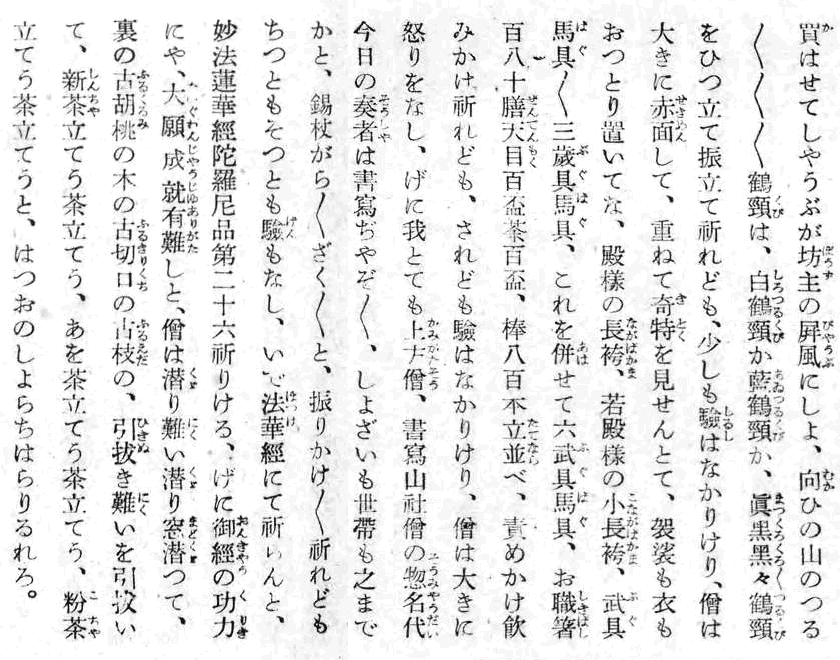 買はせてしやうぶが坊主の屛風にしよ、向ひの山のつる
〳〵〳〵〳〵鶴頸は、白鶴頸か藍鶴頸か、眞黑黑々鶴頸
をひつ立て振立て祈れども、少しも驗はなかりけり、僧は
大きに赤面して、重ねて奇特を見せんとて、袈裟も衣も
おつとり置いてな、殿樣の長袴、若殿樣の小長袴、武具
馬具〳〵三歲具馬具、これを併せて六武具馬具、お職箸
百八十膳天目百盃茶百盃、棒八百本立並べ、責めかけ飮
みかけ祈れども、されども驗はなかりけり、僧は大きに
怒りをなし、げに我とても上方僧、書寫山社僧の惣名代
今日の奏者は書寫ぢやぞ〳〵、しよざいも世帶も之まで
かと、錫杖がら〳〵ざく〳〵と、振りかけ〳〵祈れども
ちつともそつとも驗もなし、いで法華經にて祈らんと、
妙法蓮華經陀羅尼品第二十六祈りける、げに御經の功力
にや、大願成就有難しと、僧は潜り難い潜り窓潜つて、
裏の古胡桃の木の古切口の古枝の、引拔き難いを引拔い
て、新茶立てう茶立てう、あを茶立てう茶立てう、粉茶
立てう茶立てうと、はつおのしよらちはらりるれろ。